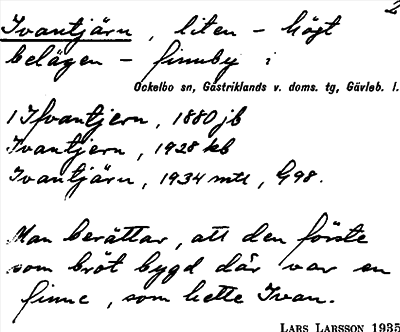 2
Ivantjärn, liten - högt
belägen - finnby i
Ockelbo sn, Gästriklands v. doms. tg, Gävleb. l.
1 Ifvantjern, 1880 jb
Ivantjern, 1928 kb
Ivantjärn, 1934 mtl, G98.
Man berättar, att den förste
som bröt bygd där var en
finne, som hette Ivan.
LARS LARSSON 1935